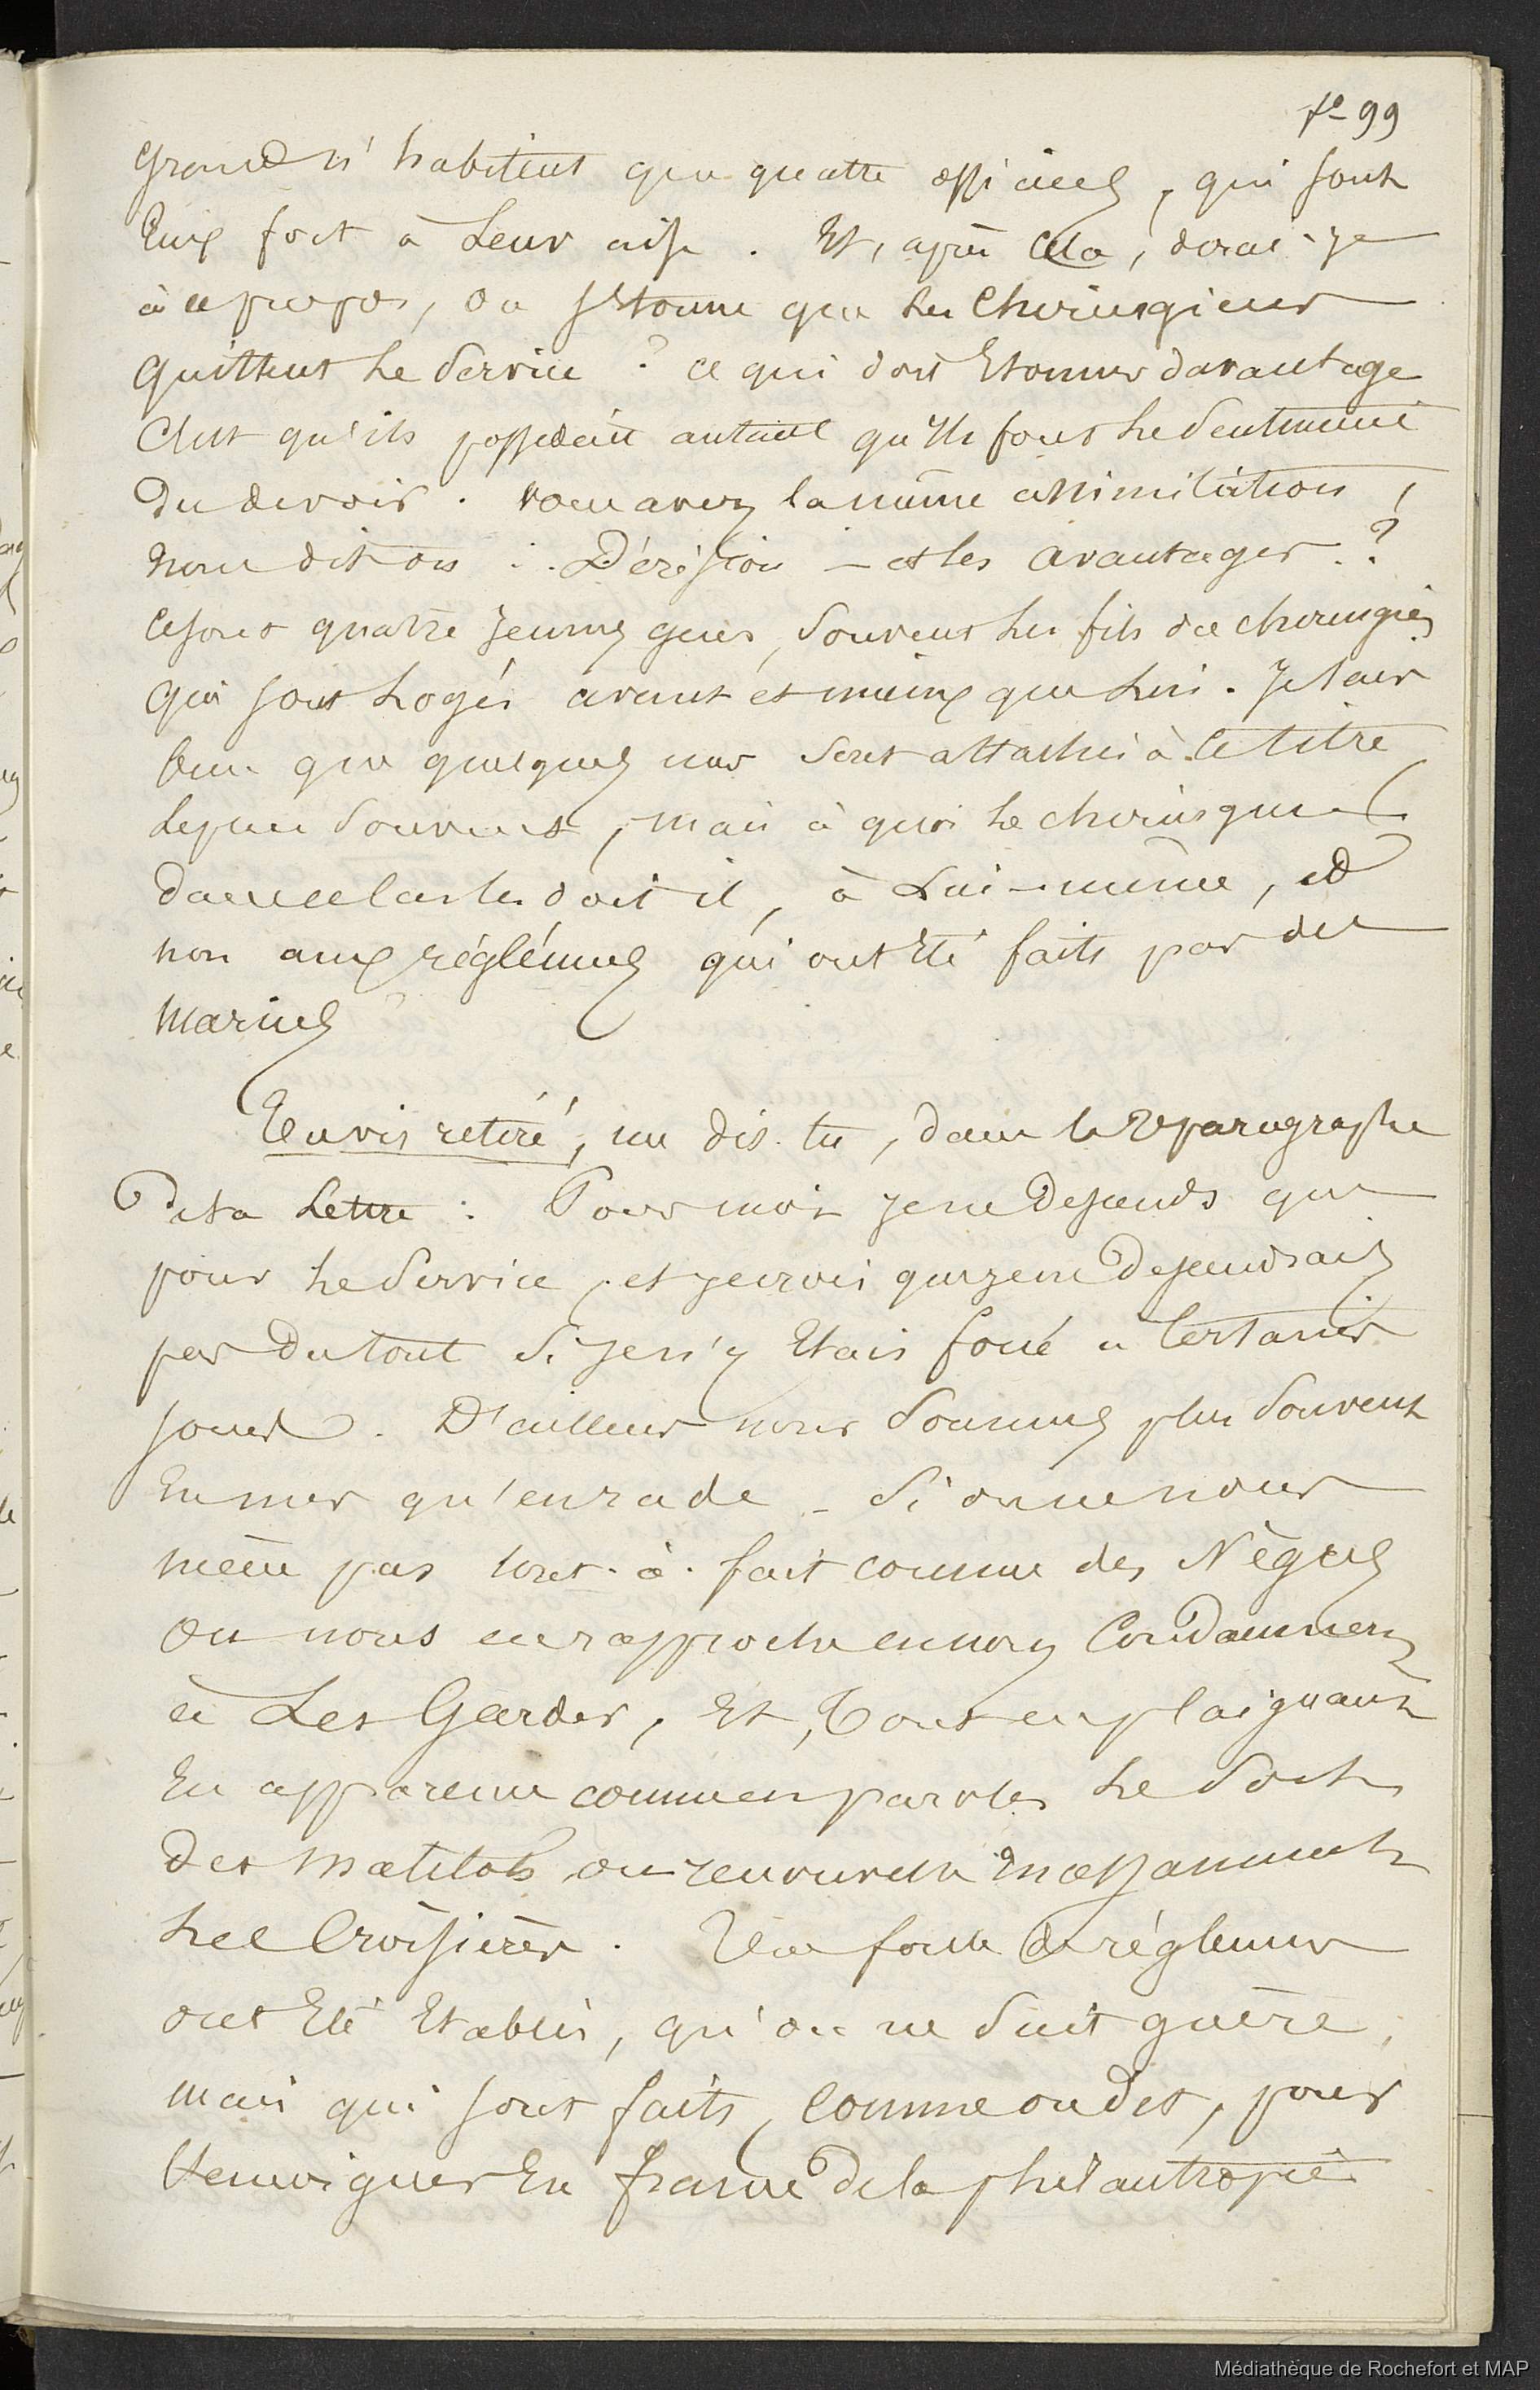 fo 99
grand n'habitent que quatre officiers, qui sont
Eux fort à Leur aise. Et, après Cela, dirai-je
à ce propos, on s'Etonne que les Chirurgiens
quittent le Service? ce qui doit Etonner davantage
C'est qu'ils possedent autant qu'Ils font le Sentiment
du devoir. vous avez la même assimilation,
nous dit on... Dérision - et les avantages?
ce sont quatre Jeunes gens, Souvent les fils de chirurgiens
qui sont Logés avant et mieux que lui. Je sais
bien que quelques uns sont attachés à Ce titre
depuis Souvent, mais à quoi le chirurgien
dans ce cas le doit il, à Lui-même, et
non aux réglémens qui ont Eté faits par des
marins
Tu vis retiré, me dis-tu, dans le 2e paragraphe
De ta Lettre: Pour moi je ne Descends que
pour le Service, et je crois que je ne Descendrais
pas Du tout Si Je n'y Etais forcé à Certains
jours. D'ailleurs nous Sommes plus Souvent
En mer qu'en rade - Si on ne nous
mène pas tout-à-fait comme des Nègres
on nous en rapproche en nous Condamnant
à Les Garder, Et, Tout en plaignant
En apparence comme en paroles le Sort
des matelots on renouvelle Incessamment
les Croisières. Une foule de réglemens
ont Eté Etablis, qu'on ne Suit guère,
mais qui sont faits, comme on dit, pour
temoigner En france De la philantropie